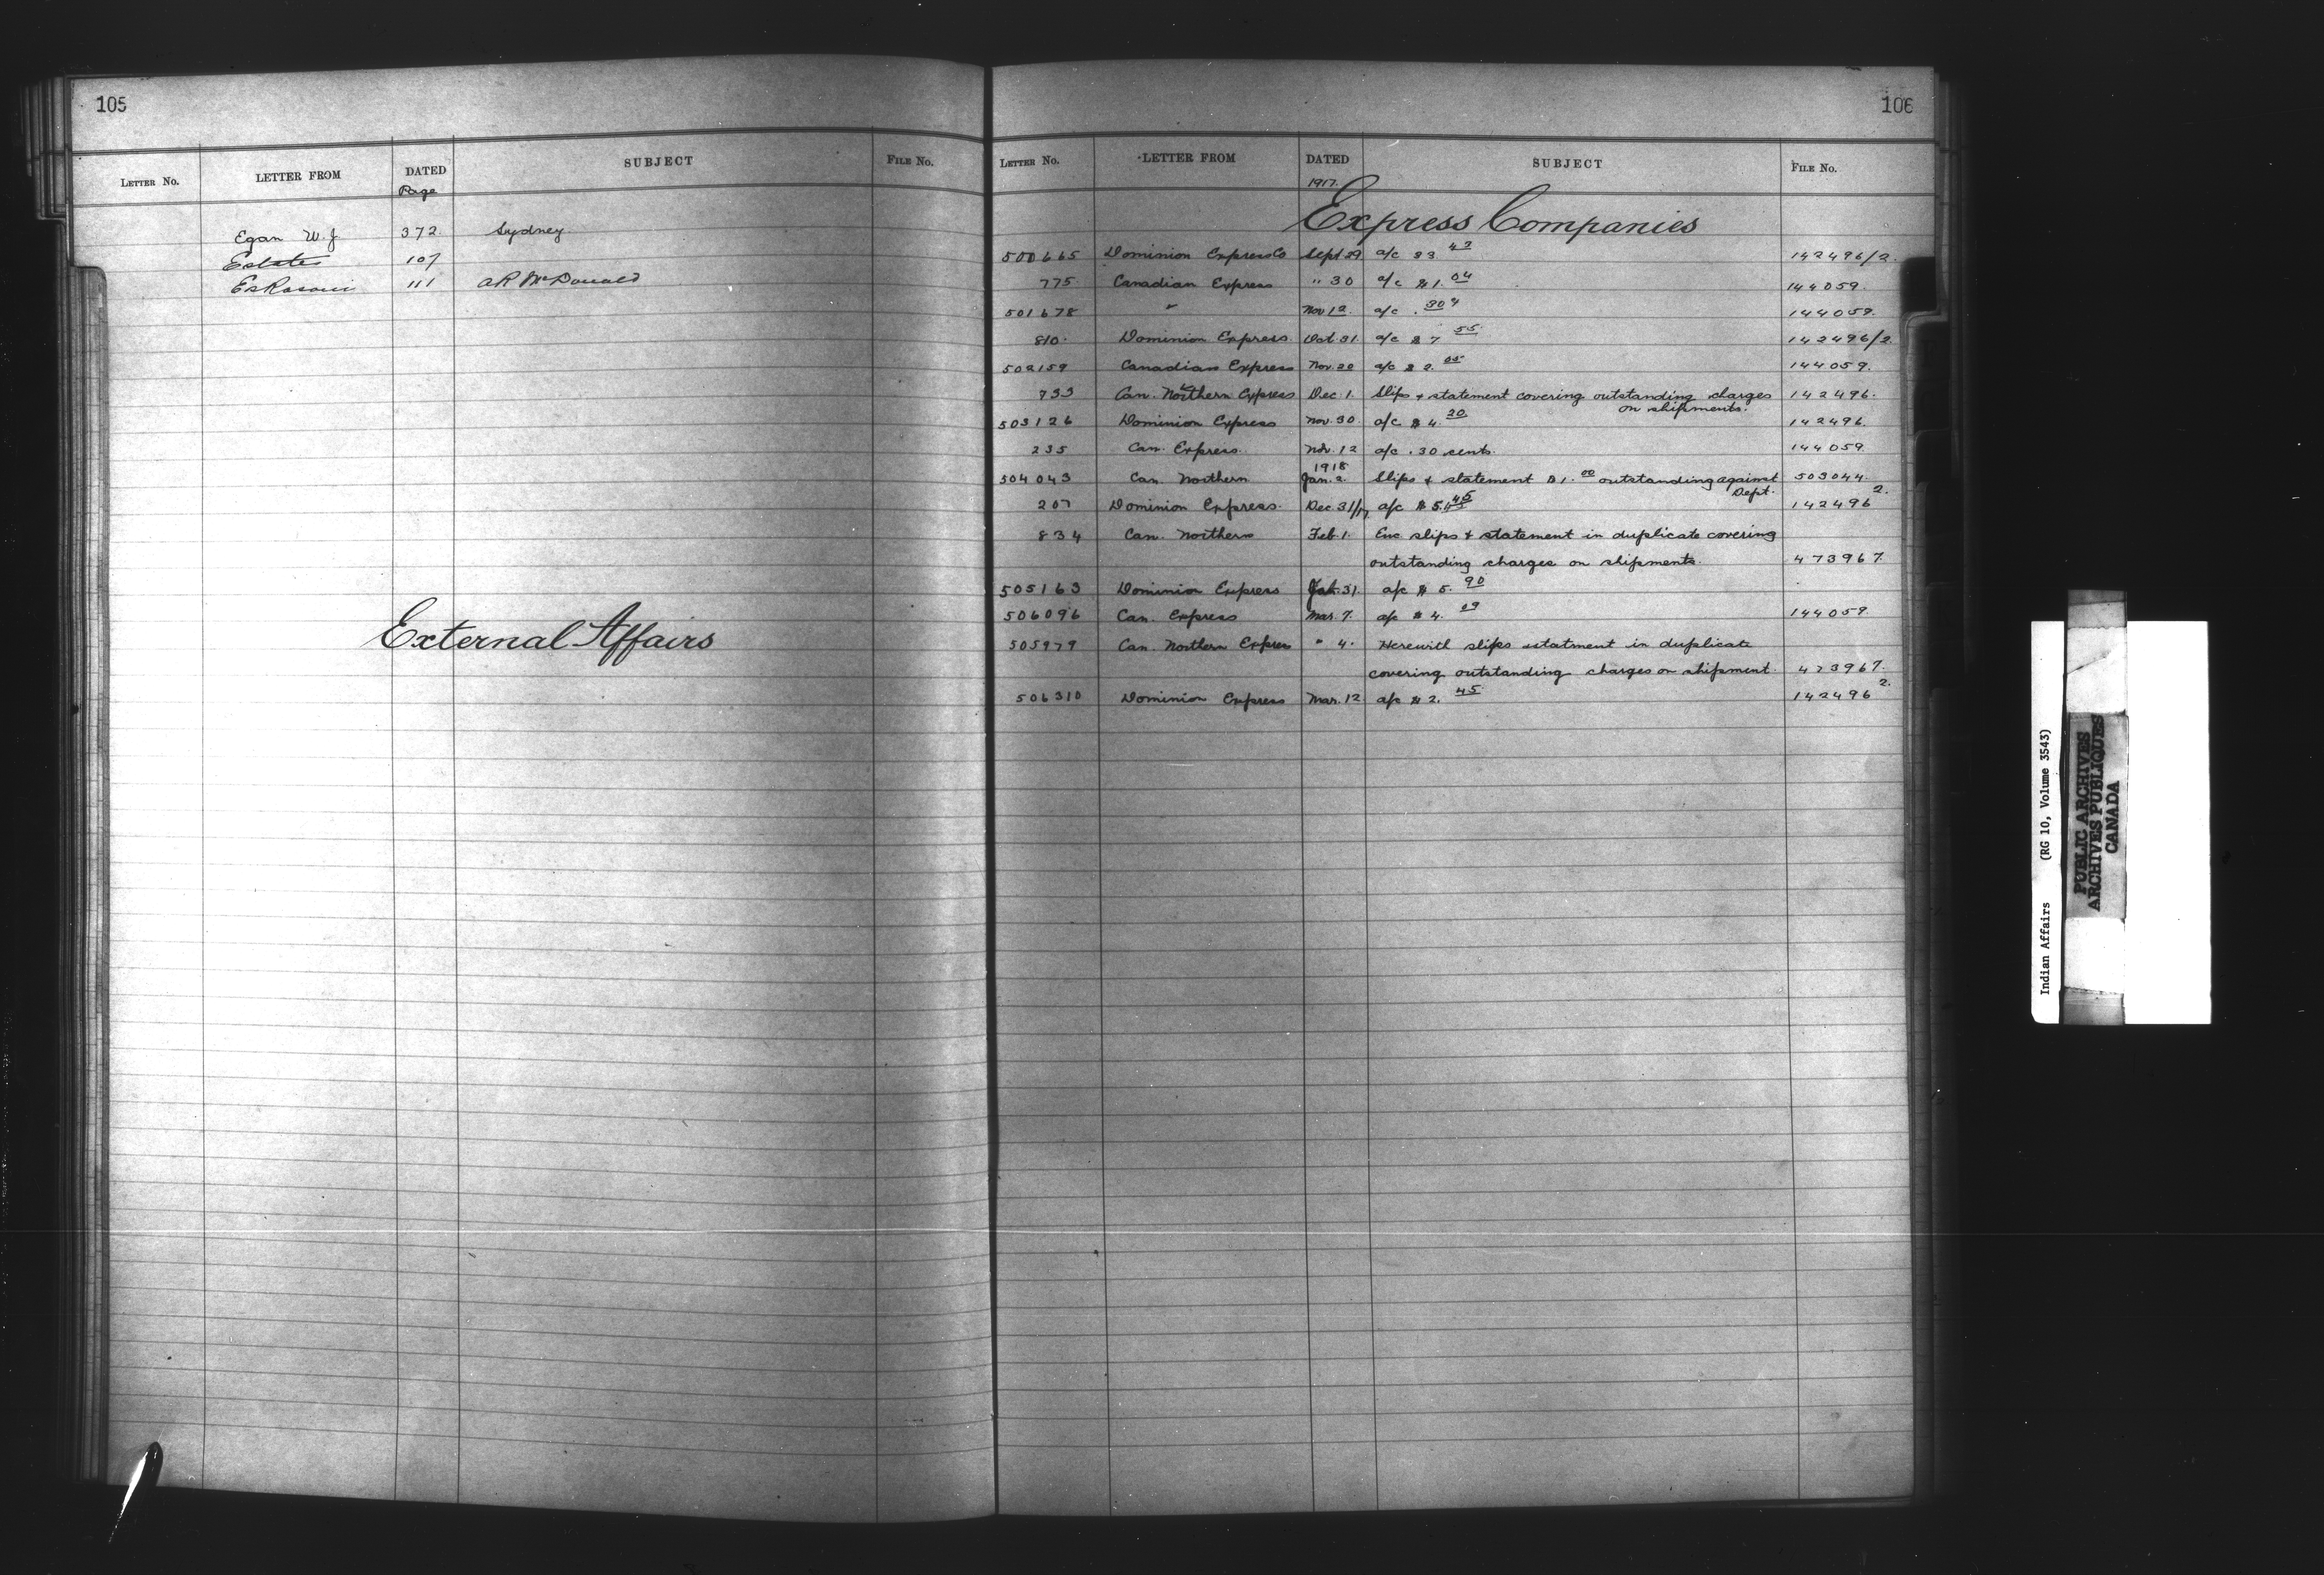 105
LETTER NO. LETTER FROM DATED SUBJECT FILE NO.
Page
Egan W.J. 372 Sydney
Estates 107
Eskasoni 111 A R McDonald
External Affairs
106
LETTER NO. LETTER FROM DATED SUBJECT FILE NO.
1917.
Express Companies
500665 Dominion Express Co Sept 29 a/c $3 43 142496/2.
775 Canadian Express " 30 a/c $1. 04 144059.
501678 " Nov 12. a/c . 30 144059.
810. Dominion Express Oct 31. a/c $7 55 142496/2
502159 Canadian Express Nov. 20 a/c $2. 05 144059.
733 Can. Northern Express Dec. 1. Slips & statement covering outstanding charges 142496.
on shipments.
503126 Dominion Express Nov. 30. a/c $4. 20 142496.
235 Can. Express. Nov. 12 a/c . 30 cents. 144059.
1918
504043 Can. Northern Jan. 2. Slips & statement $1. 00 outstanding against 503044.
Dept.
207 Dominion Express. Dec. 31/17 a/c $5. 45 142496 2.
834 Can. Northern Feb. 1. Enc. slips & statement in duplicate covering
outstanding charges on shipments. 473967.
505163 Dominion Express Jan. 31. a/c $5. 90
506096 Can. Express Mar. 7. a/c $4. 09 144059.
505979 Can. Northern Express " 4. Herewith slips statment in duplicate
covering outstanding charges on shipment. 473967.
506310 Dominion Express Mar. 12 a/c $2. 45 142496 2.
Indian Affairs (RG 10, Volume 3543)
PUBLIC ARCHIVES
ARCHIVES PUBLIQUES
CANADA